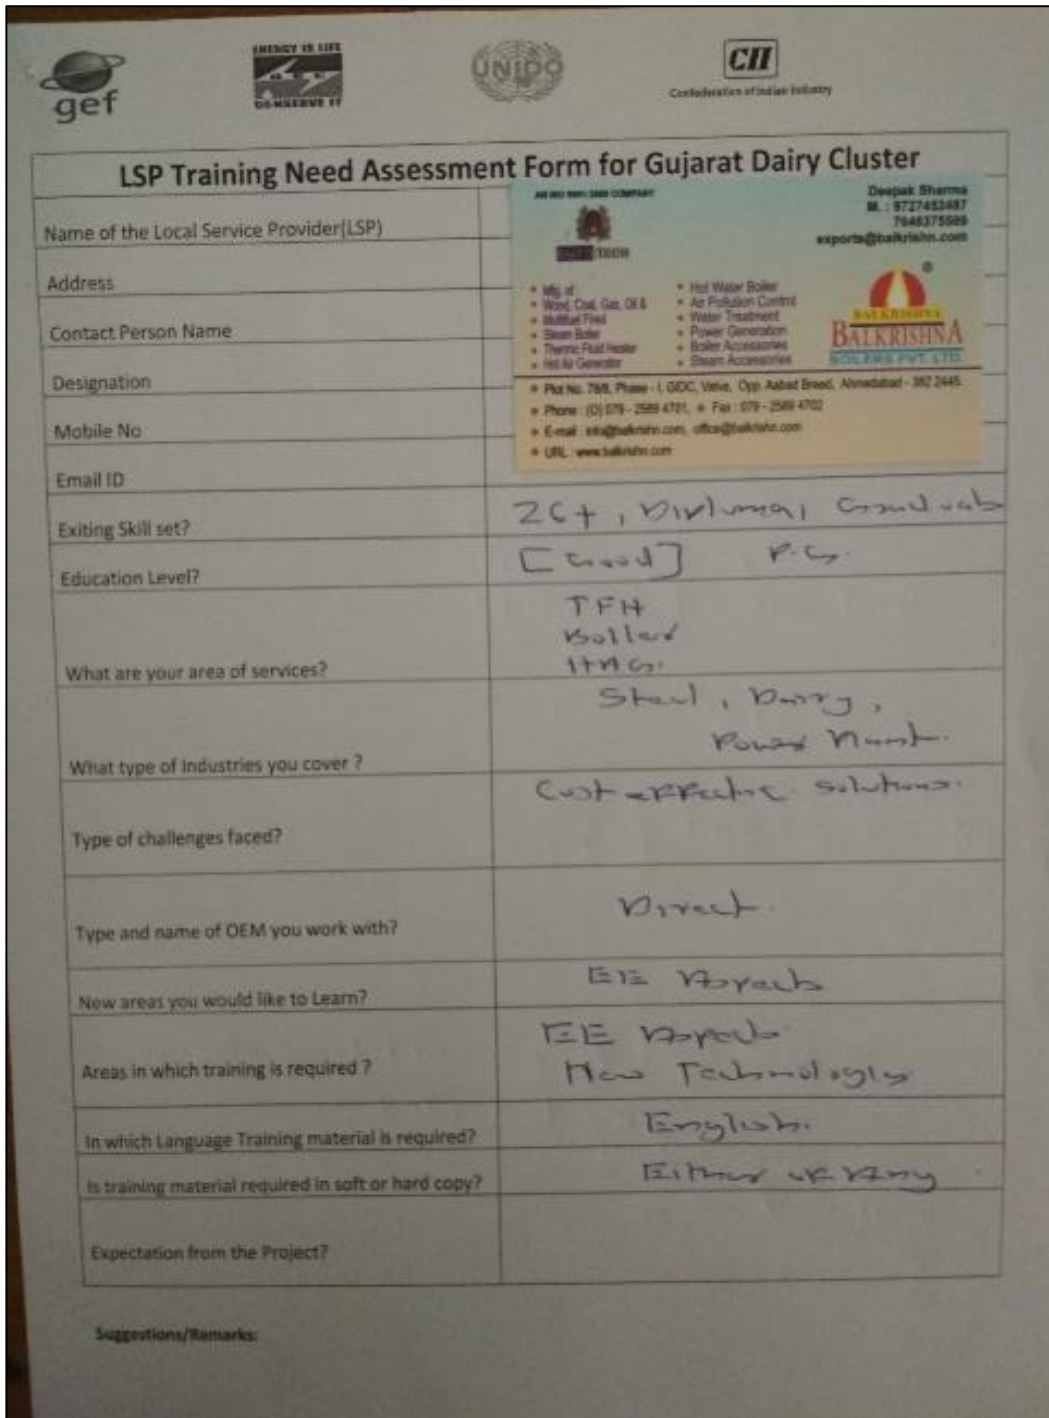 gef
ENERGY IS LIFE
CONSERVE IT
UNIDO
CII
Confederation of Indian Industry
LSP Training Need Assessment Form for Gujarat Dairy Cluster
Name of the Local Service Provider(LSP)
Address
Contact Person Name
Designation
Mobile No
Email ID
COMPANY
TECH
Deepak Sharma
M. : 9727453487
exports@balkrishn.com
Mfg. of
Wood, Coal, Gas, Oil &
Multifuel Fired
Steam Boiler
Thermic Fluid Heater
Hot Air Generator
Hot Water Boiler
Air Pollution Control
Water Treatment
Power Generation
Boiler Accessories
Steam Accessories
BALKRISHNA
BALKRISHNA
BOILERS PVT. LTD.
Plot No. Phase - I, GIDC, Vatva, Opp. Breed, Ahmedabad - 382 2445.
Phone : (O) 079 - 2589 4701, Fax : 079 - 2589 4702
E-mail : info@balkrishn.com, office@balkrishn.com
URL : www.balkrishn.com
Exiting Skill set? , Diploma, Graduate
Education Level? [Good] P.G.
What are your area of services? TFH
Boiler
HAG.
What type of Industries you cover ? Steel, Dairy,
Power Plant.
Type of challenges faced? Cost effective solutions.
Type and name of OEM you work with? Direct.
New areas you would like to Learn? EE Aspects
Areas in which training is required ? EE Aspects
New Technology
In which Language Training material is required? English.
Is training material required in soft or hard copy? Either or Any
Expectation from the Project?
Suggestions/Remarks: